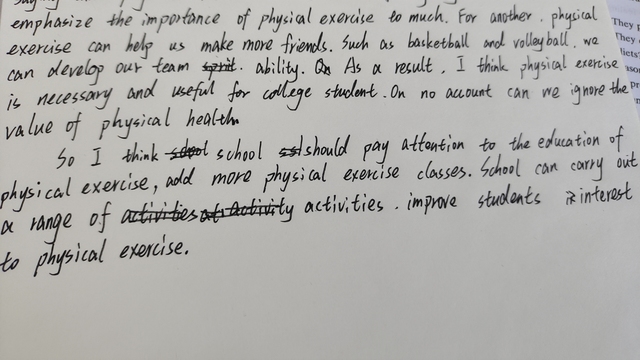 emphasize the importance of physical exercise to much. For another, physical
exercise can help us make more friends. Such as basketball and volleyball, we
can develop our team ability. As a result, I think physical exercise
is necessary and useful for college student. On no account can we ignore the
value of physical health
So I think school should pay attention to the education of
physical exercise, add more physical exercise classes. School can carry out
a range of activities. improve students interest
to physical exercise.
They